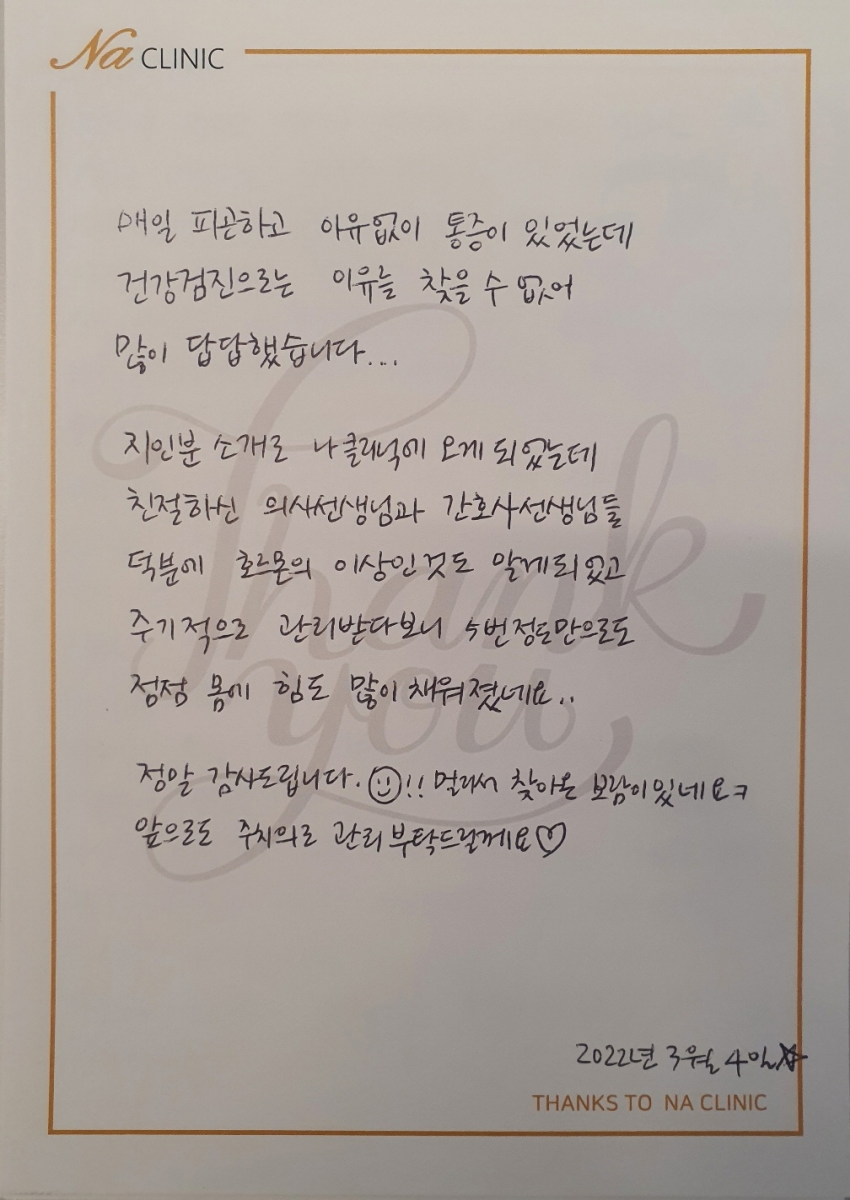 Na CLINIC
매일 피곤하고 아유없이 통증이 있었는데
건강검진으로는 이유를 찾을 수 없어
많이 답답했습니다...
지인분 소개로 나클리닉에 오게 되었는데
친절하신 의사선생님과 간호사선생님들
덕분에 호르몬의 이상인것도 알게되었고
주기적으로 관리받다보니 5번정도만으로도
점점 몸에 힘도 많이 채워졌네요..
정말 감사드립니다. !! 멀리서 찾아온 보람이있네요ㅋ
앞으로도 주치의로 관리 부탁드릴께요♡
Thank
you
2022년 3월 4일☆
THANKS TO NA CLINIC